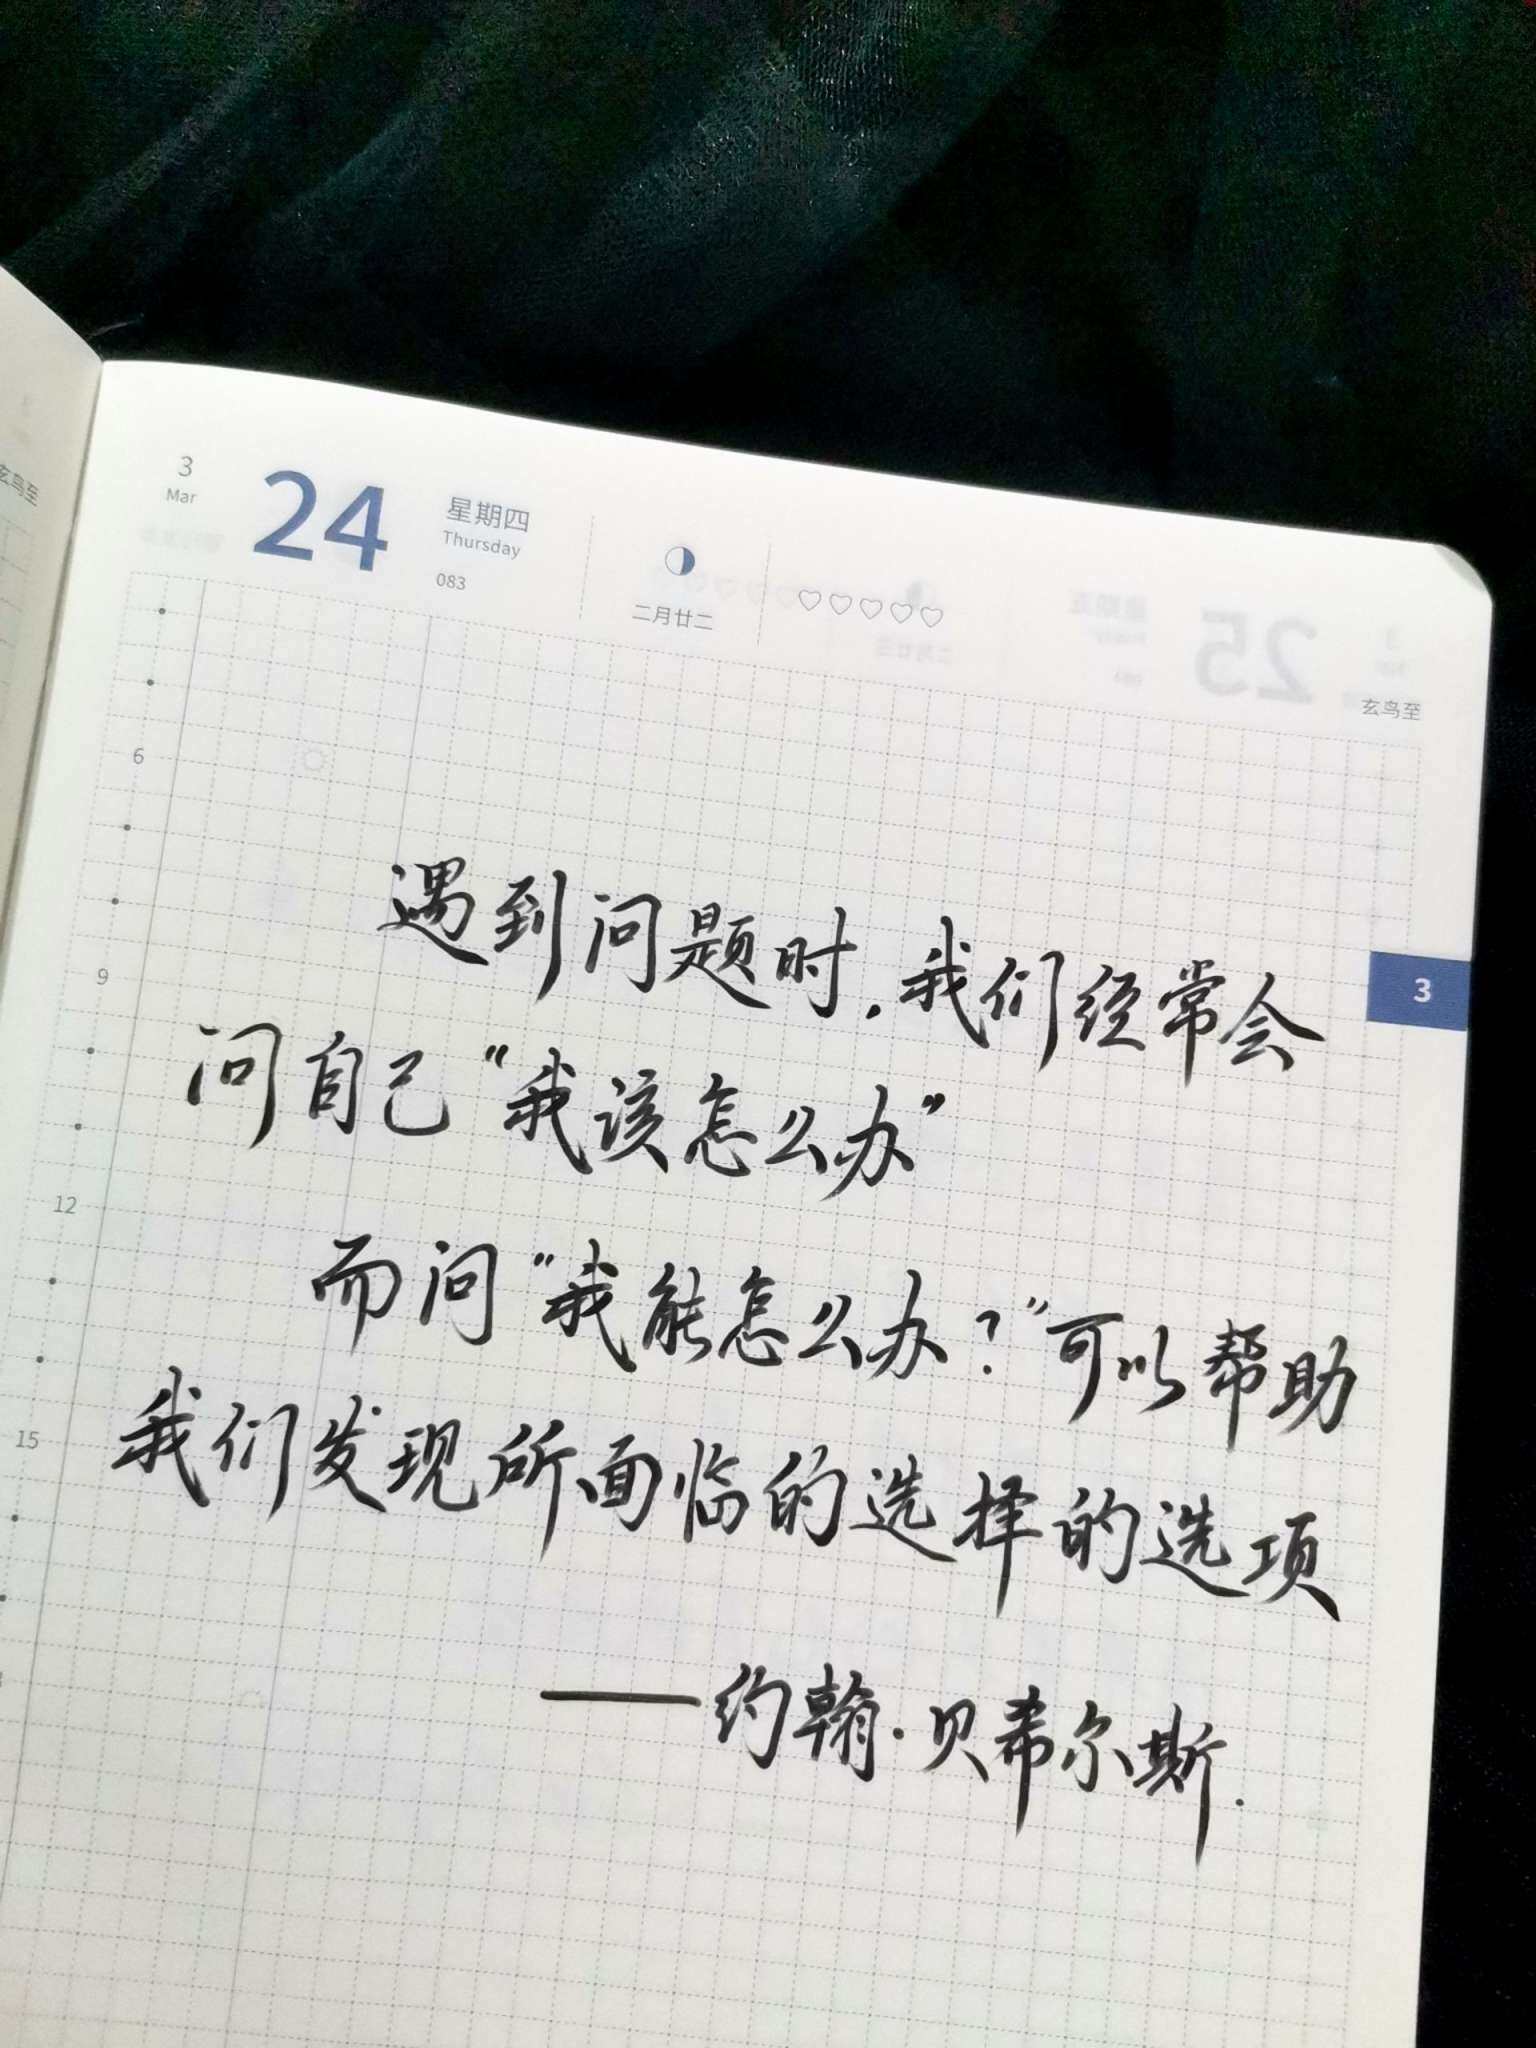 3
Mar
24
星期四
Thursday
083
二月廿二
玄鸟至
玄鸟至
25
3
6
9
12
15
遇到问题时，我们经常会
问自己“我该怎么办”
而问“我能怎么办？”可以帮助
我们发现所面临的选择的选项
——约翰·贝希尔斯.